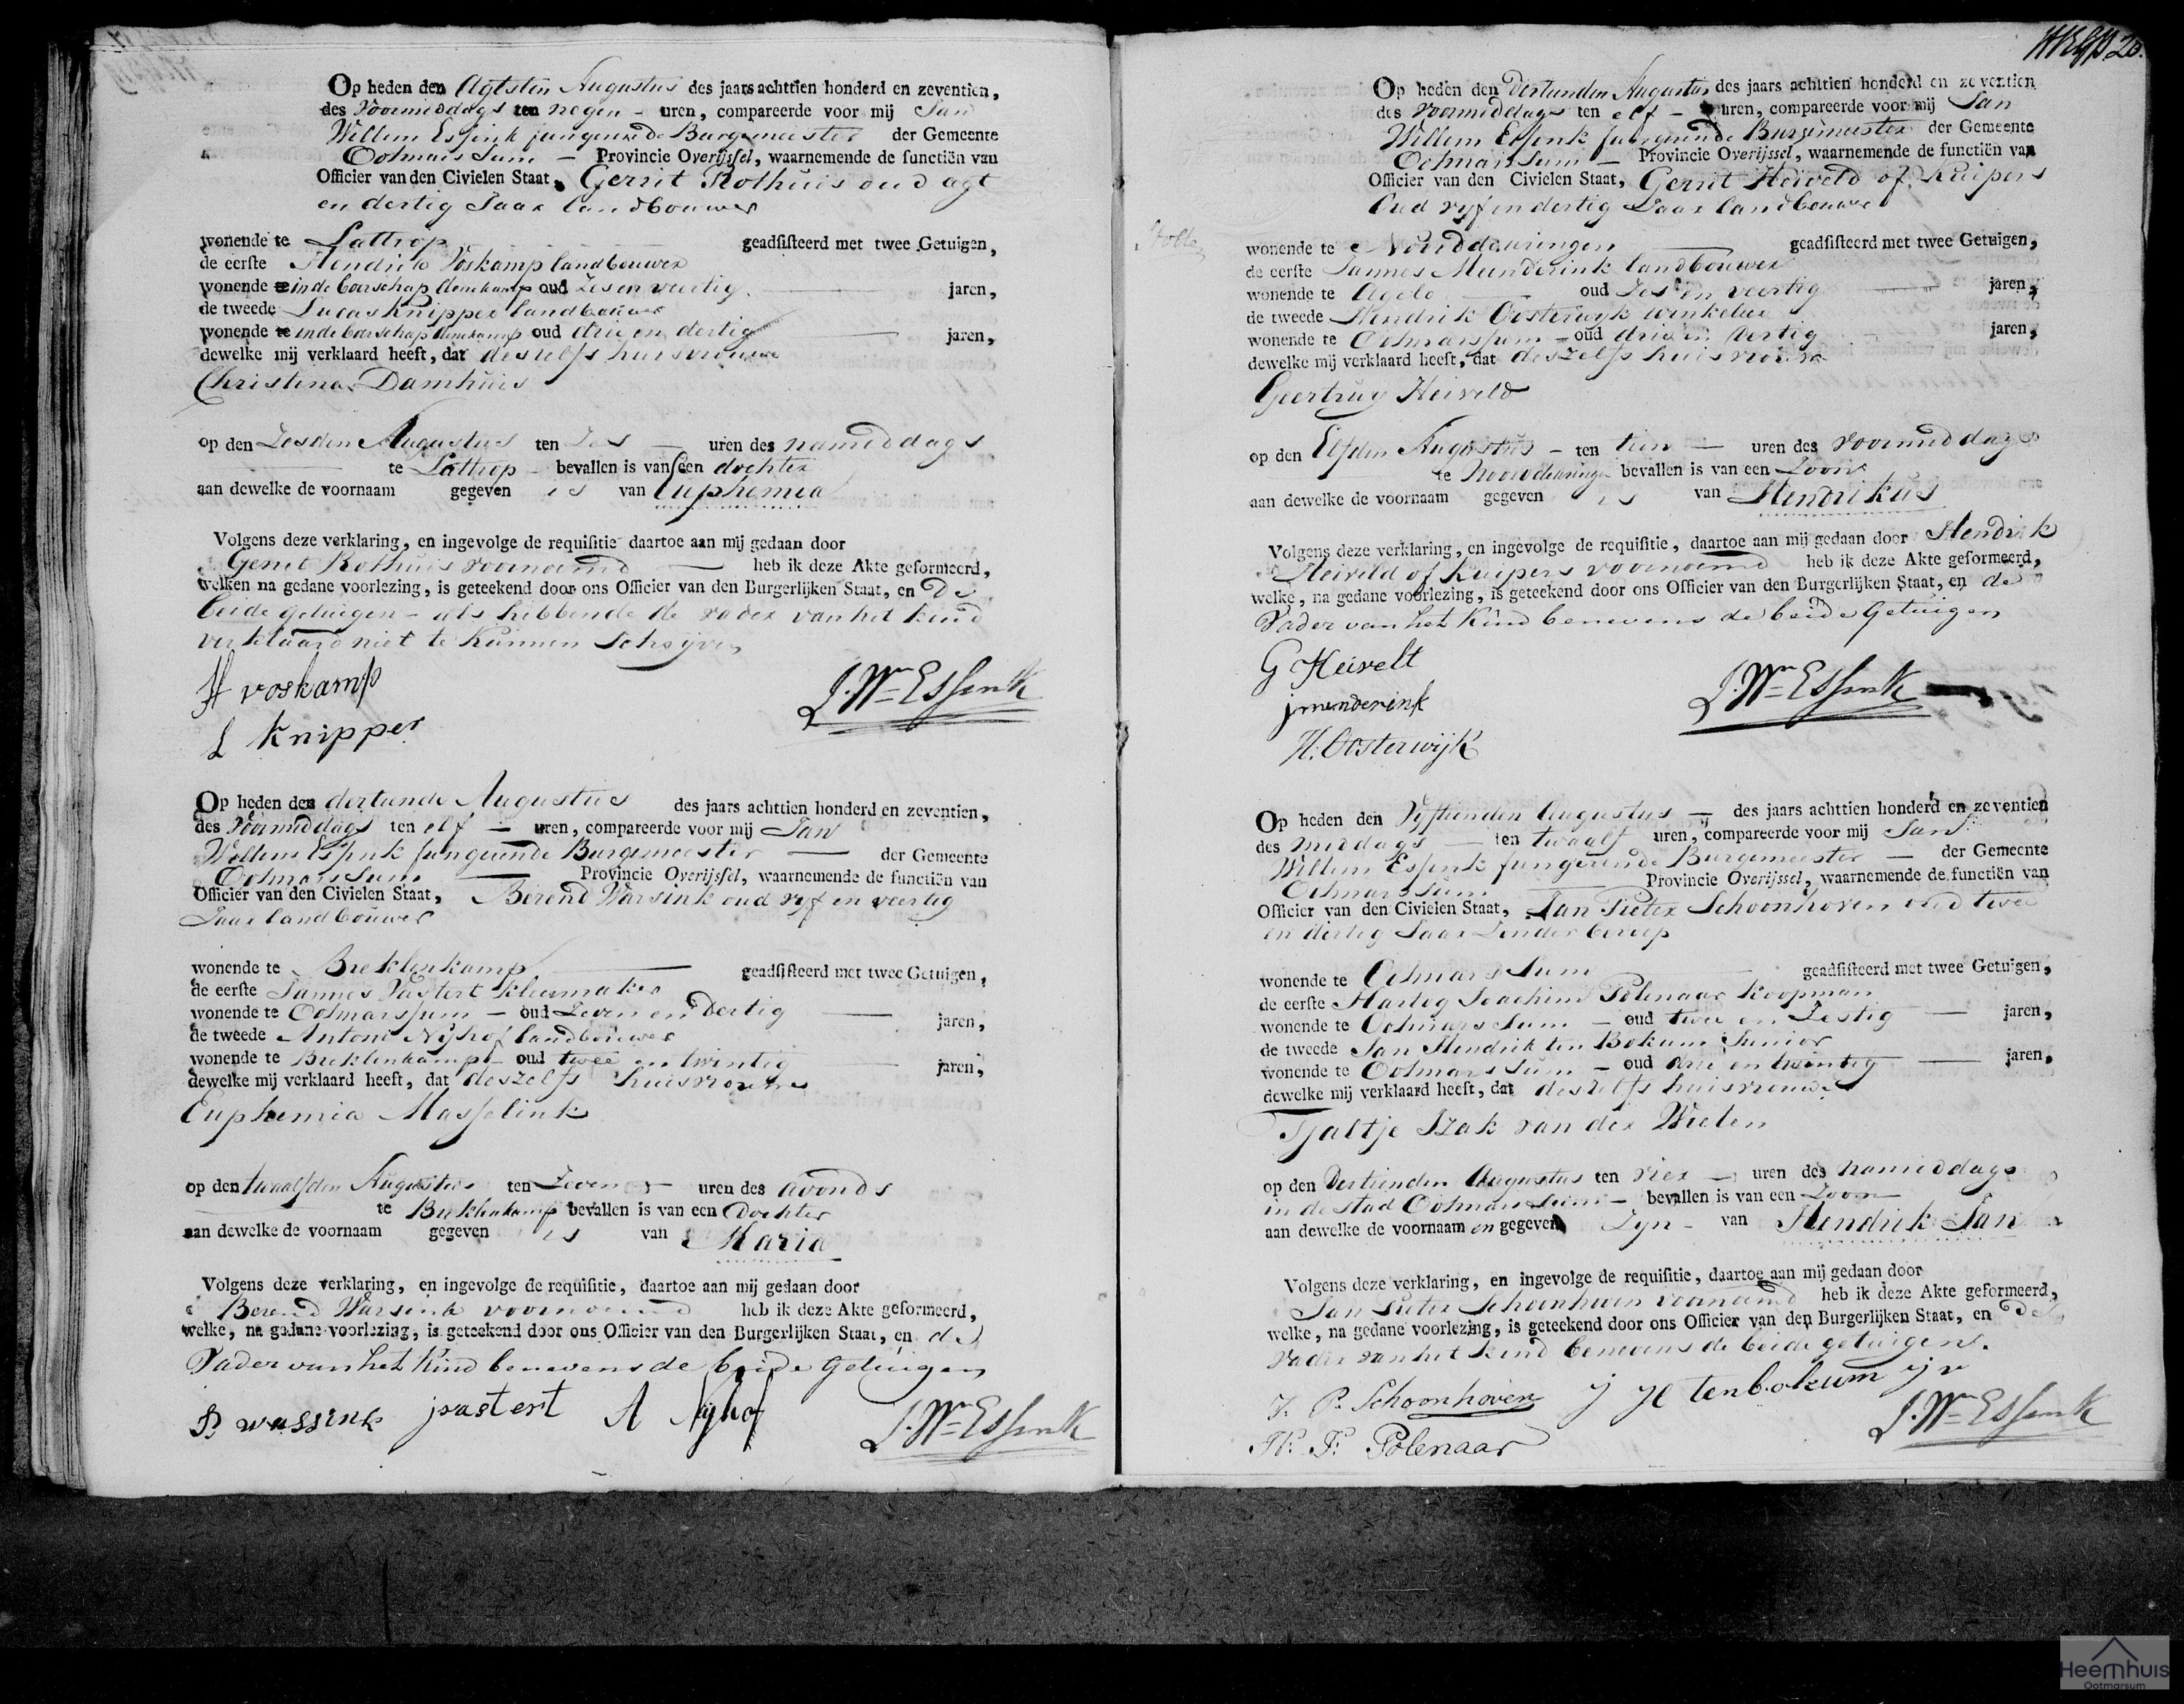 Op heden den Agtsten Augustus des jaars achttien honderd en zeventien,
des voormiddags ten negen - uren, compareerde voor mij Jan
Willem Essink fungerende Burgemeester der Gemeente
Ootmarssum - Provincie Overijssel, waarnemende de functiën van
Officier van den Civielen Staat, Gerrit Rothuis oud agt
en dertig Jaar landbouwer
wonende te Lattrop geadsisteerd met twee Getuigen,
de eerste Hendrik Voskamp landbouwer
wonende te in de boerschap denekamp oud Zes en veertig jaren,
de tweede Lucas Knipper landbouwer
wonende te in de boerschap denekamp oud drie en dertig jaren,
dewelke mij verklaard heeft, dat deszelfs huisvrouwe
Christina Damhuis
op den Zesden Augustus ten Zes - uren des namiddags
te Lattrop - bevallen is van een dochter
aan dewelke de voornaam gegeven is van Euphemia
Volgens deze verklaring, en ingevolge de requisitie daartoe aan mij gedaan door
Gerrit Rothuis voornoemd heb ik deze Akte geformeerd,
welken na gedane voorlezing, is geteekend door ons Officier van den Burgerlijken Staat, en De
beide getuigen - als hebbende de vader van het kind
verklaard niet te kunnen schryven
H voskamp
J. Wm Essink
L Knipper
Op heden den dertiende Augustus des jaars achttien honderd en zeventien,
des voormiddags ten elf - uren, compareerde voor mij Jan
Willem Essink fungerende Burgemeester - der Gemeente
Ootmarssum Provincie Overijssel, waarnemende de functiën van
Officier van den Civielen Staat, Berend Warsink oud vyf en veertig
Jaar landbouwer
wonende te Breklenkamp geadsisteerd met twee Getuigen,
de eerste Jannes Pastert kleermaker
wonende te Ootmarssum - oud Zeven en Dertig jaren,
de tweede Antoni Nyhof landbouwer
wonende te Breklenkamp - oud twee en twintig jaren,
dewelke mij verklaard heeft, dat deszelfs huisvrouwe
Euphemia Masselink
op den twaalfden Augustus ten Zeven - uren des avonds
te Breklenkamp bevallen is van een Dochter
aan dewelke de voornaam gegeven is van Maria
Volgens deze verklaring, en ingevolge de requisitie, daartoe aan mij gedaan door
Berend Warsink voornoemd heb ik deze Akte geformeerd,
welke, na gedane voorlezing, is geteekend door ons Officier van den Burgerlijken Staat, en de
Vader van het Kind benevens de beide Getuigen
B wassink jpastert A Nyhof J. Wm Essink
Op heden den dertienden Augustus des jaars achttien honderd en zeventien
des voormiddags ten elf - uren, compareerde voor mij Jan
Willem Essink fungerende Burgemeester der Gemeente
Ootmarssum - Provincie Overijssel, waarnemende de functiën van
Officier van den Civielen Staat, Gerrit Heiveld of Kuipers
Oud vyf en dertig Jaar landbouwer
wonende te Noorddeuringen geadsisteerd met twee Getuigen,
de eerste Jannes Munderink landbouwer
wonende te Agelo oud Zes en veertig jaren,
de tweede Hendrik Oosterwyk winkelier
wonende te Ootmarssum - oud drie en dertig jaren,
dewelke mij verklaard heeft, dat deszelfs huisvrouw
Geertruy Heiveld
op den Elfden Augustus - ten tien - uren des voormiddags
te Noorddeuringe bevallen is van een Zoon
aan dewelke de voornaam gegeven is van Hendrikus
Volgens deze verklaring, en ingevolge de requisitie, daartoe aan mij gedaan door Hendrik
Heiveld of Kuipers voornoemd heb ik deze Akte geformeerd,
welke, na gedane voorlezing, is geteekend door ons Officier van den Burgerlijken Staat, en de
Vader van het Kind benevens de beide Getuigen
G Heivelt
jmunderink
J. Wm Essink
H. Oosterwijk
Op heden den Vyftienden Augustus - des jaars achttien honderd en zeventien
des middags - ten twaalf uren, compareerde voor mij Jan
Willem Essink fungerende Burgemeester - der Gemeente
Ootmarssum Provincie Overijssel, waarnemende de functiën van
Officier van den Civielen Staat, Jan Pieter Schoonhoven oud twee
en dertig Jaar Zonder beroep
wonende te Ootmarssum geadsisteerd met twee Getuigen,
de eerste Hartog Joachim Polenaar Koopman
wonende te Ootmarssum - oud twee en Zestig jaren,
de tweede Jan Hendrik ten Bokum Junior
wonende te Ootmarssum - oud drie en twintig jaren,
dewelke mij verklaard heeft, dat deszelfs huisvrouwe
Tjaltje Izak van der Wielen
op den Dertienden Augustus ten vier - uren des namiddags
in de Stad Ootmarssum - bevallen is van een Zoon
aan dewelke de voornaam en gegeven Zyn - van Hendrik Jan
Volgens deze verklaring, en ingevolge de requisitie, daartoe aan mij gedaan door
Jan Pieter Schoonhoven voornoemd heb ik deze Akte geformeerd,
welke, na gedane voorlezing, is geteekend door ons Officier van den Burgerlijken Staat, en De
vader van het kind benevens de beide getuigen.
J. P. Schoonhoven j H tenbokum jr
J. Wm Essink
Polenaar
Heemhuis
Ootmarsum